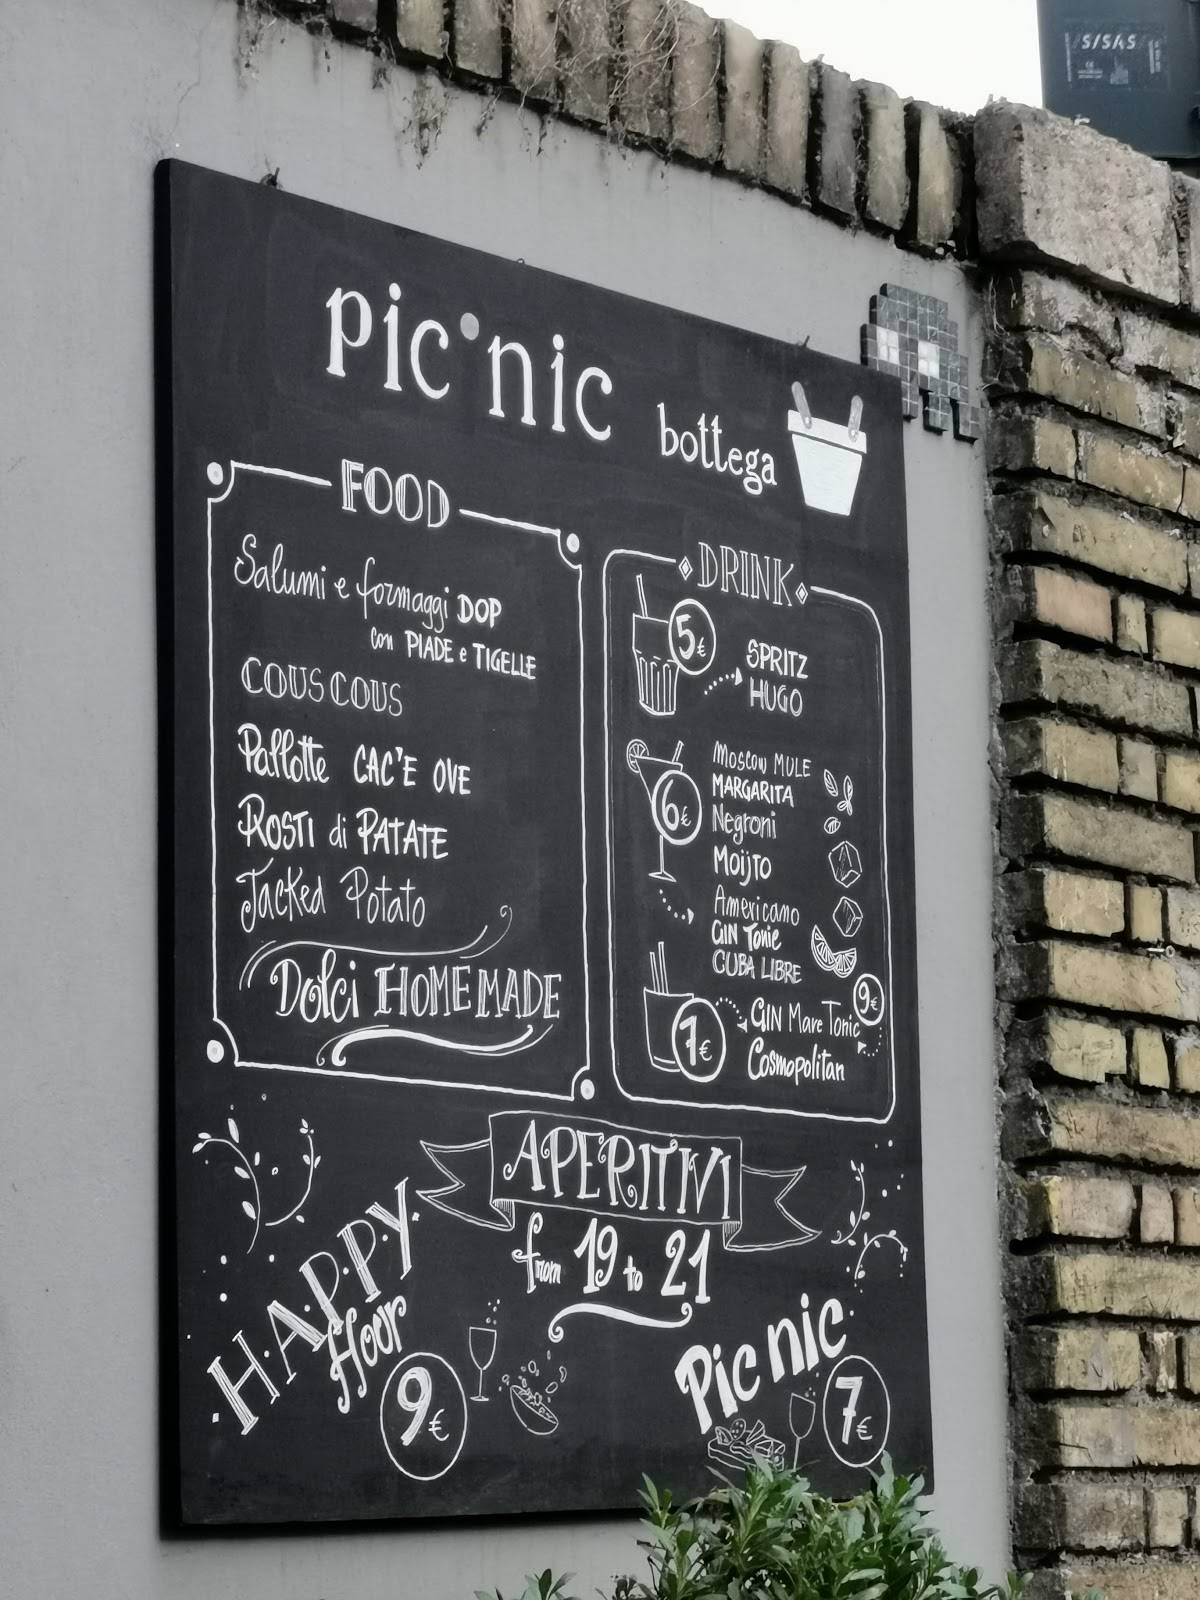 S/SAS
pic°nic
bottega
FOOD
Salumi e formaggi DOP
con PIADE e TIGELLE
COUSCOUS
Pallotte CAC'E OVE
ROSTI di PATATE
Jacked Potato
Dolci HOMEMADE
DRINK
5€
SPRITZ
HUGO
6€
Moscow MULE
MARGARITA
Negroni
Moijto
Americano
GIN Tonic
CUBA LIBRE
7€
GIN Mare Tonic
9€
Cosmopolitan
APERITIVI
from 19 to 21
HAPPY
Hour
9€
Picnic
7€